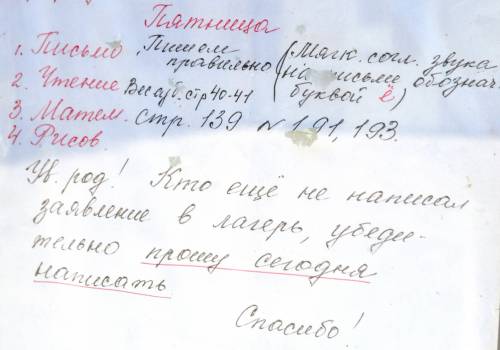 Пятница
1. Письмо, Пишем правильно (Мягк. согл. звука на письме обознач. буквой ё)
2. Чтение стр 40-41
3. Матем. стр. 139 № 191, 193.
4. Рисов.
Ув. род! Кто ещё не написал
заявление в лагерь, убеди-
тельно прошу сегодня
написать
Спасибо!